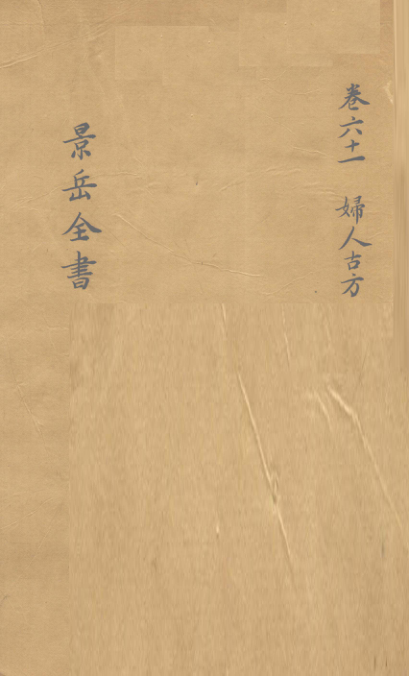 卷六十一 婦人古方
景岳全書